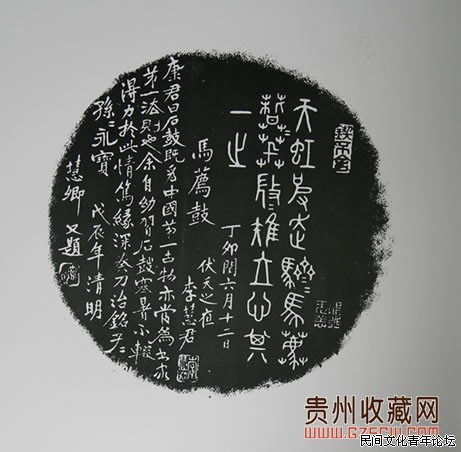 天虹 走 馬薦
雄立心其
一止
馬薦鼓
丁卯閏六月十二日
伏天之夜
李慧君
康君曰石鼓既為中國第一古物亦當為書家
第一法則也余自幼習石鼓寒暑不輟
得力於此情篤緣深矣刀治銘子々
孫々永寶 戊辰年清明
慧卿又題
贵州收藏网
www.gzscw.com
民间文化青年论坛